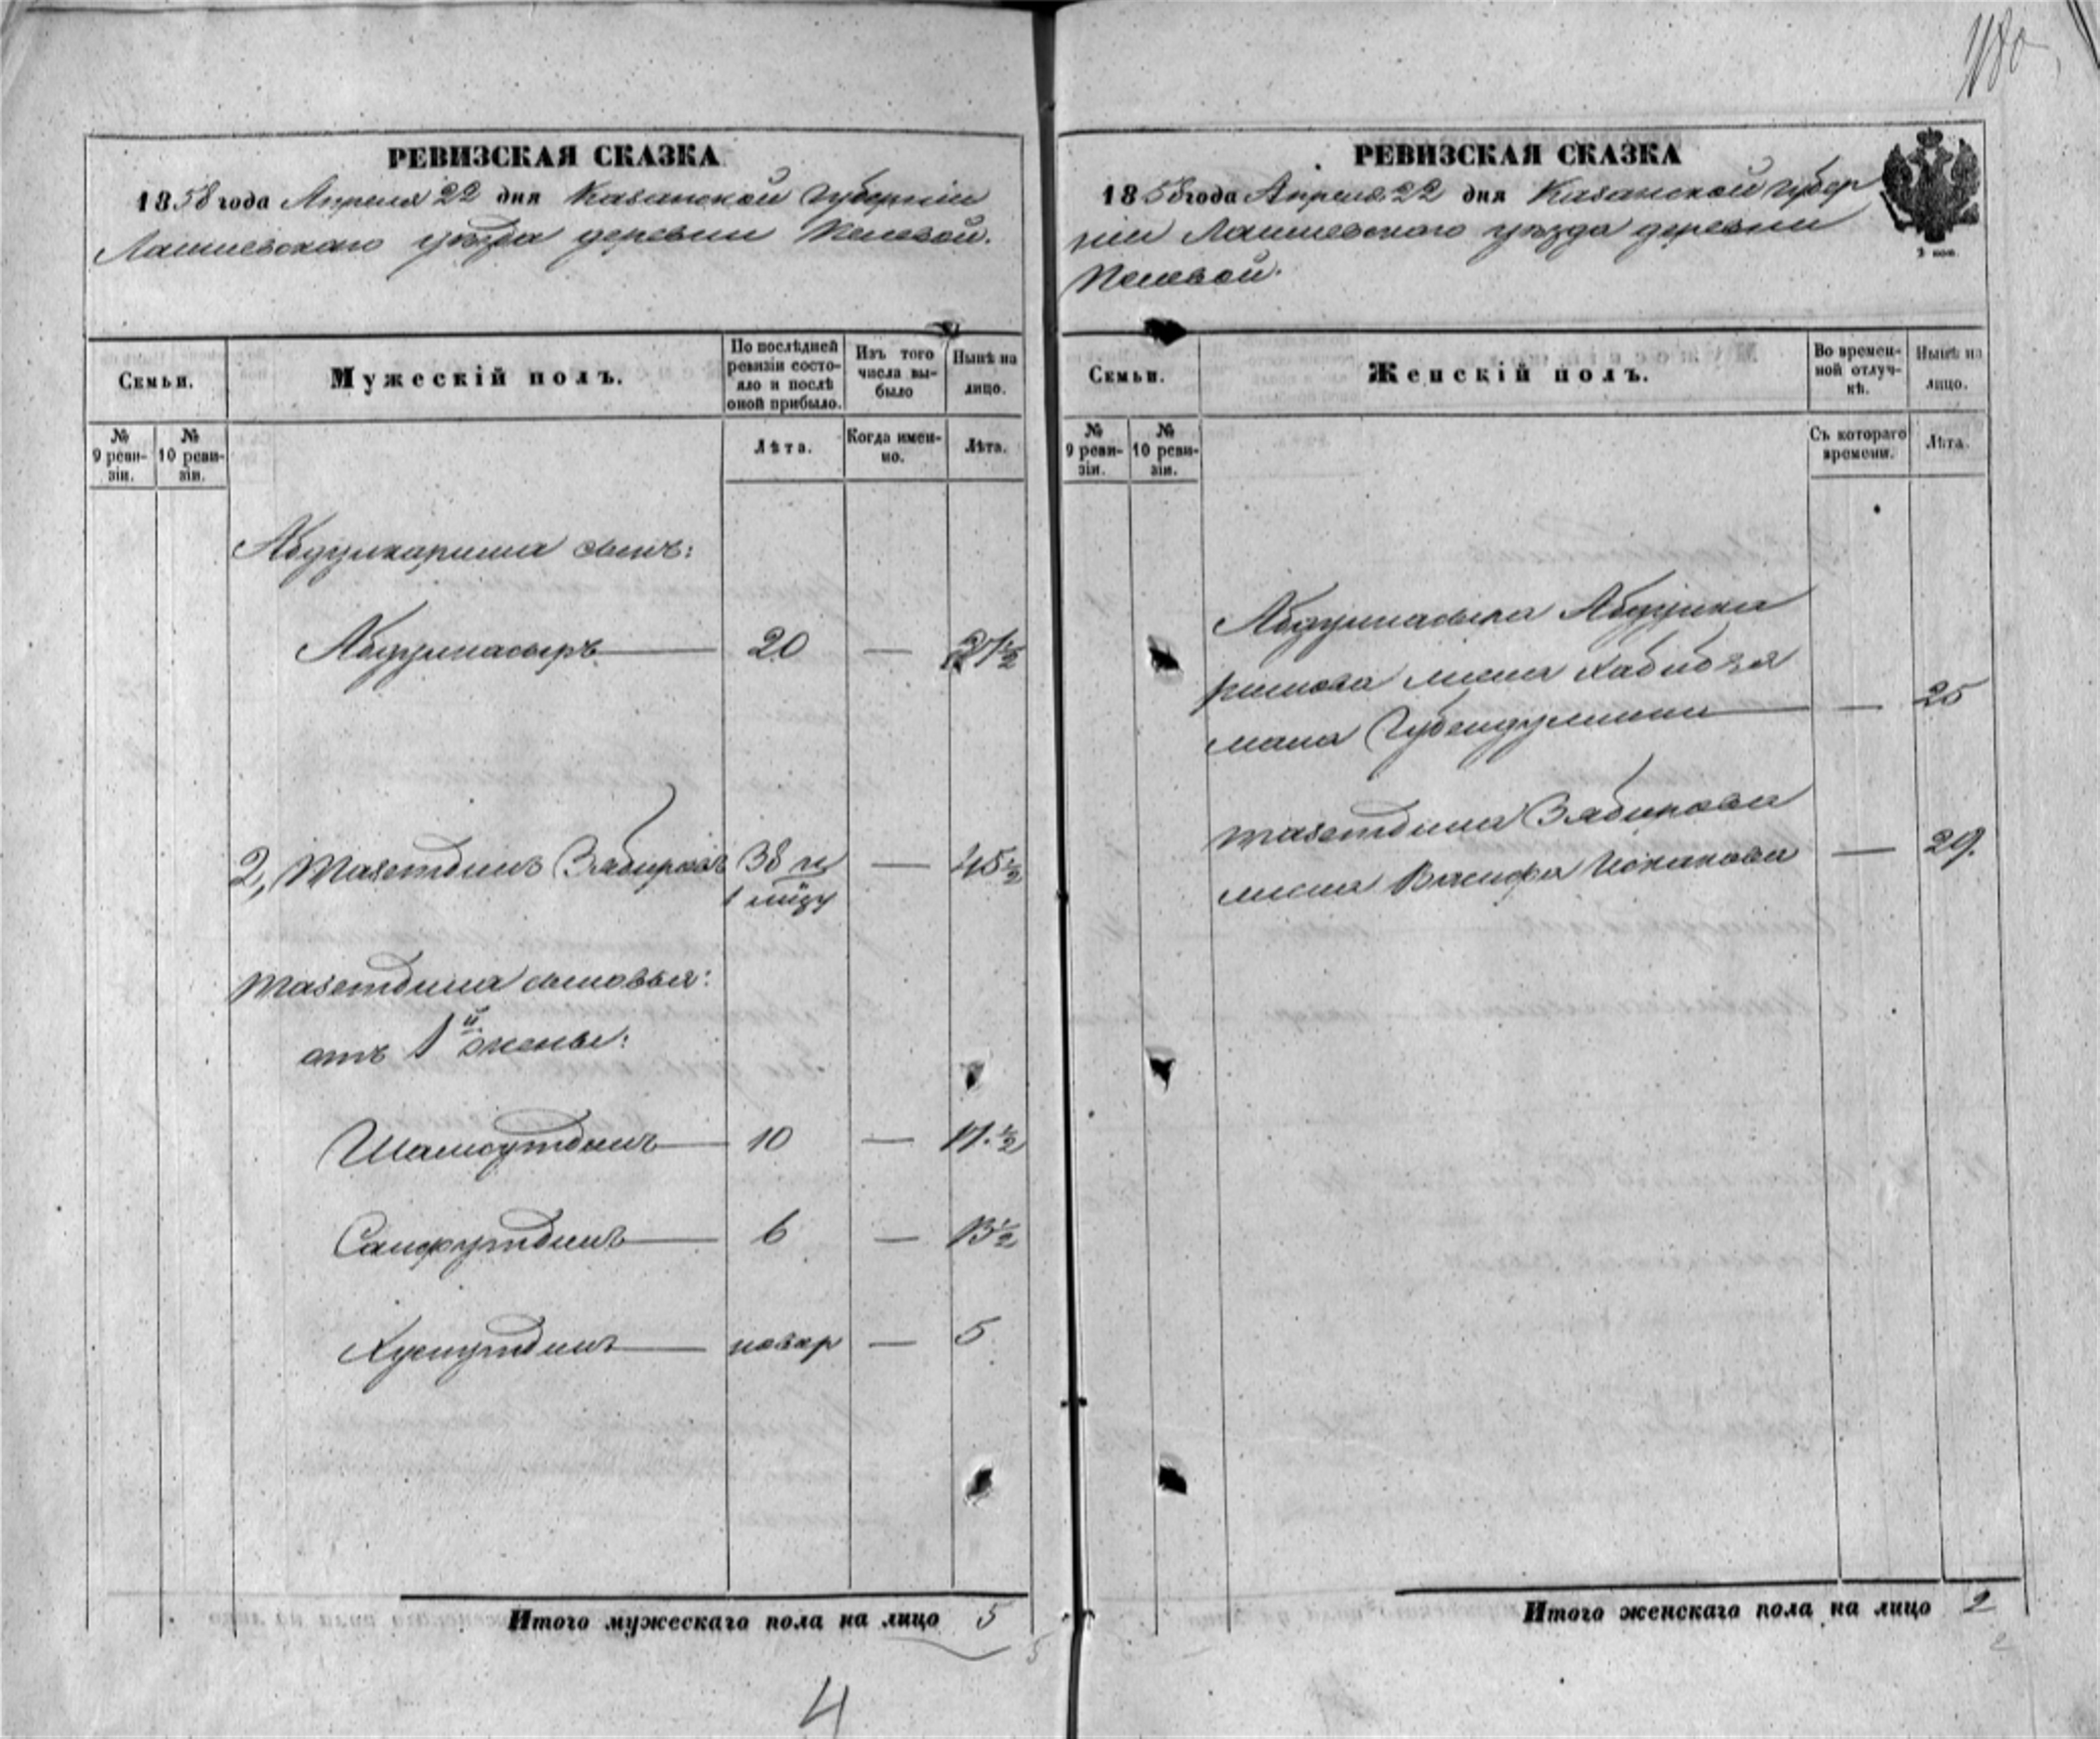 1180
РЕВИЗСКАЯ СКАЗКА
1858 года Апреля 22 дня Казанской Губерніи
Лаишевскаго уѣзда деревни
Семьи.
Мужескій полъ.
По послѣдней ревизіи состояло и послѣ оной прибыло.
Изъ того числа выбыло
Нынѣ на лицо.
№ 9 ревизіи.
№ 10 ревизіи.
Лѣта.
Когда именно.
Лѣта.
Абдулкарима сынъ:
Абдулнасыръ 20 — 27½
2, Тазетдинъ Забировъ 38 — 45½
Тазетдина сыновья:
отъ 1й жены:
Шамсутдинъ 10 — 17½
Саифутдинъ 6 — 13½
Хуснутдинъ новор — 5
Итого мужескаго пола на лицо 5
5
4
РЕВИЗСКАЯ СКАЗКА
1858 года Апреля 22 дня Казанской Губер
ніи Лаишевскаго уѣзда деревни
2 коп.
Семьи.
Женскій полъ.
Во временной отлучкѣ.
Нынѣ на лицо.
№ 9 ревизіи.
№ 10 ревизіи.
Съ котораго времени.
Лѣта.
Абдулнасыра Абдулка
римова жена Хабибзя
мала Губейдуллина — 25
Тазетдина Забирова
жена — 29.
Итого женскаго пола на лицо 2
2